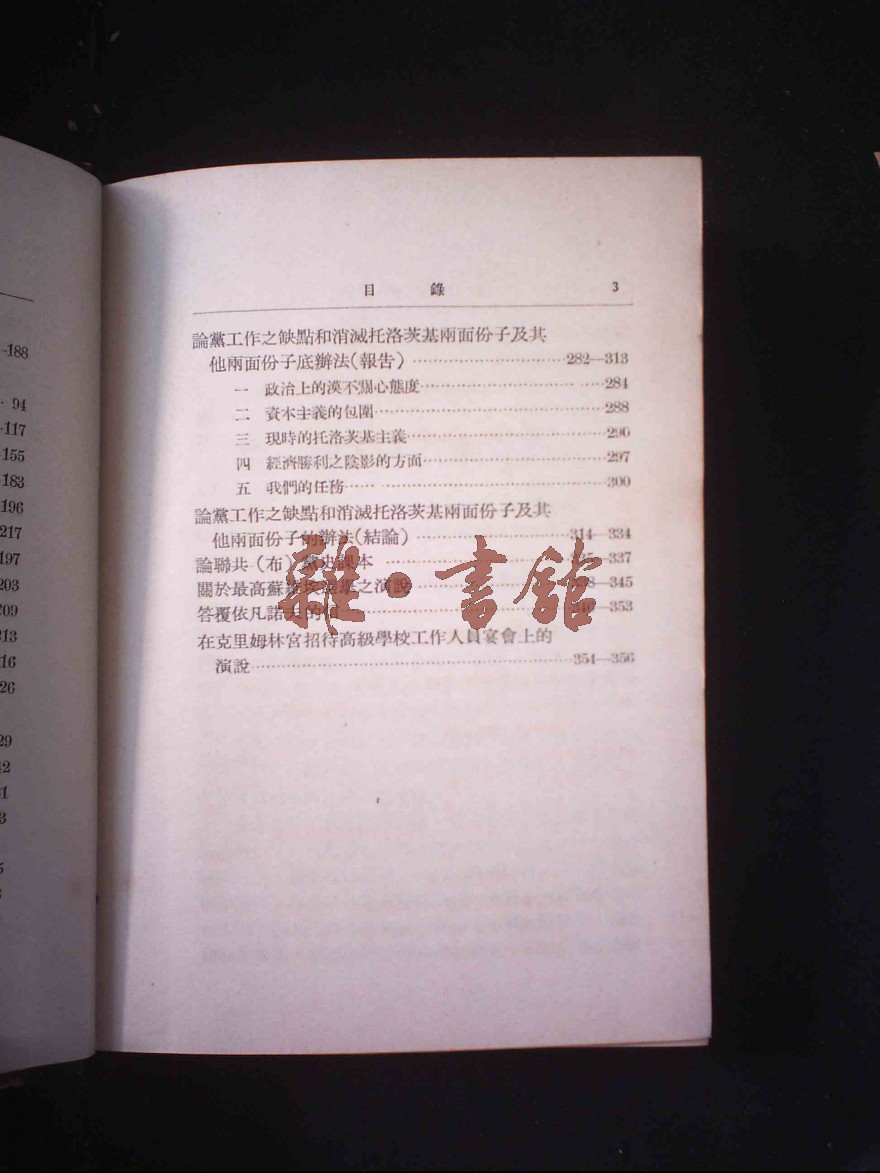 -188
94
-117
-155
-183
196
217
197
203
209
313
16
26
29
12
目　　錄　　3
論黨工作之缺點和消滅托洛茨基兩面份子及其
他兩面份子底辦法(報告)……282—313
一　政治上的漠不關心態度……284
二　資本主義的包圍……288
三　現時的托洛茨基主義……290
四　經濟勝利之陰影的方面……297
五　我們的任務……300
論黨工作之缺點和消滅托洛茨基兩面份子及其
他兩面份子的辦法(結論)……314—334
論聯共(布)黨史課本……335—337
關於最高蘇維埃選舉之演說……338—345
答覆依凡諾夫的信……346—353
在克里姆林宮招待高級學校工作人員宴會上的
演說……354—356
雜·書館